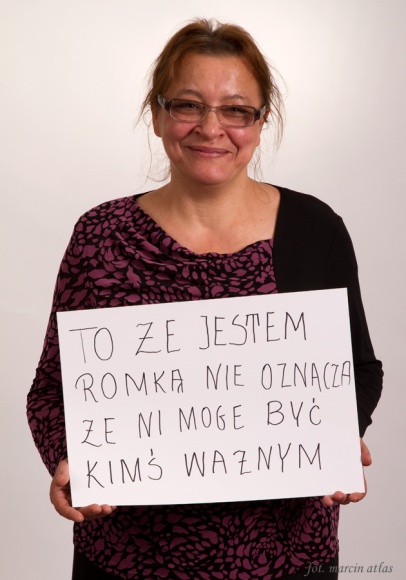 TO ŻE JESTEM
ROMKĄ NIE OZNĄCZA
ŻE NI MOGE BYĆ
KIMŚ WAŻNYM
fot. marcin atlas